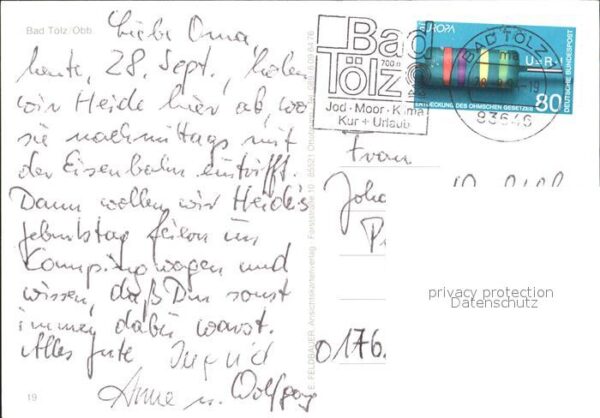 Bad Tölz/Obb.
Liebe Oma,
heute, 28. Sept., holen
wir Heide hier ab, wo
sie nachmittags mit
der Eisenbahn eintrifft.
Dann wollen wir Heide's
Geburtstag feiern im
Kampingwagen und
wissen, daß Du sonst
immer dabei warst.
Alles Gute Ingrid
Anne u. Wolfgang
19
E. FELDBAUER, Ansichtskartenverlag
Bad
Tölz
700m
Jod · Moor · Klima
Kur + Urlaub
BAD TÖLZ
83646
EUROPA
U=R·I
ENTDECKUNG DES OHMSCHEN GESETZES
80
DEUTSCHE BUNDESPOST
Frau
Joha
0176
privacy protection
Datenschutz